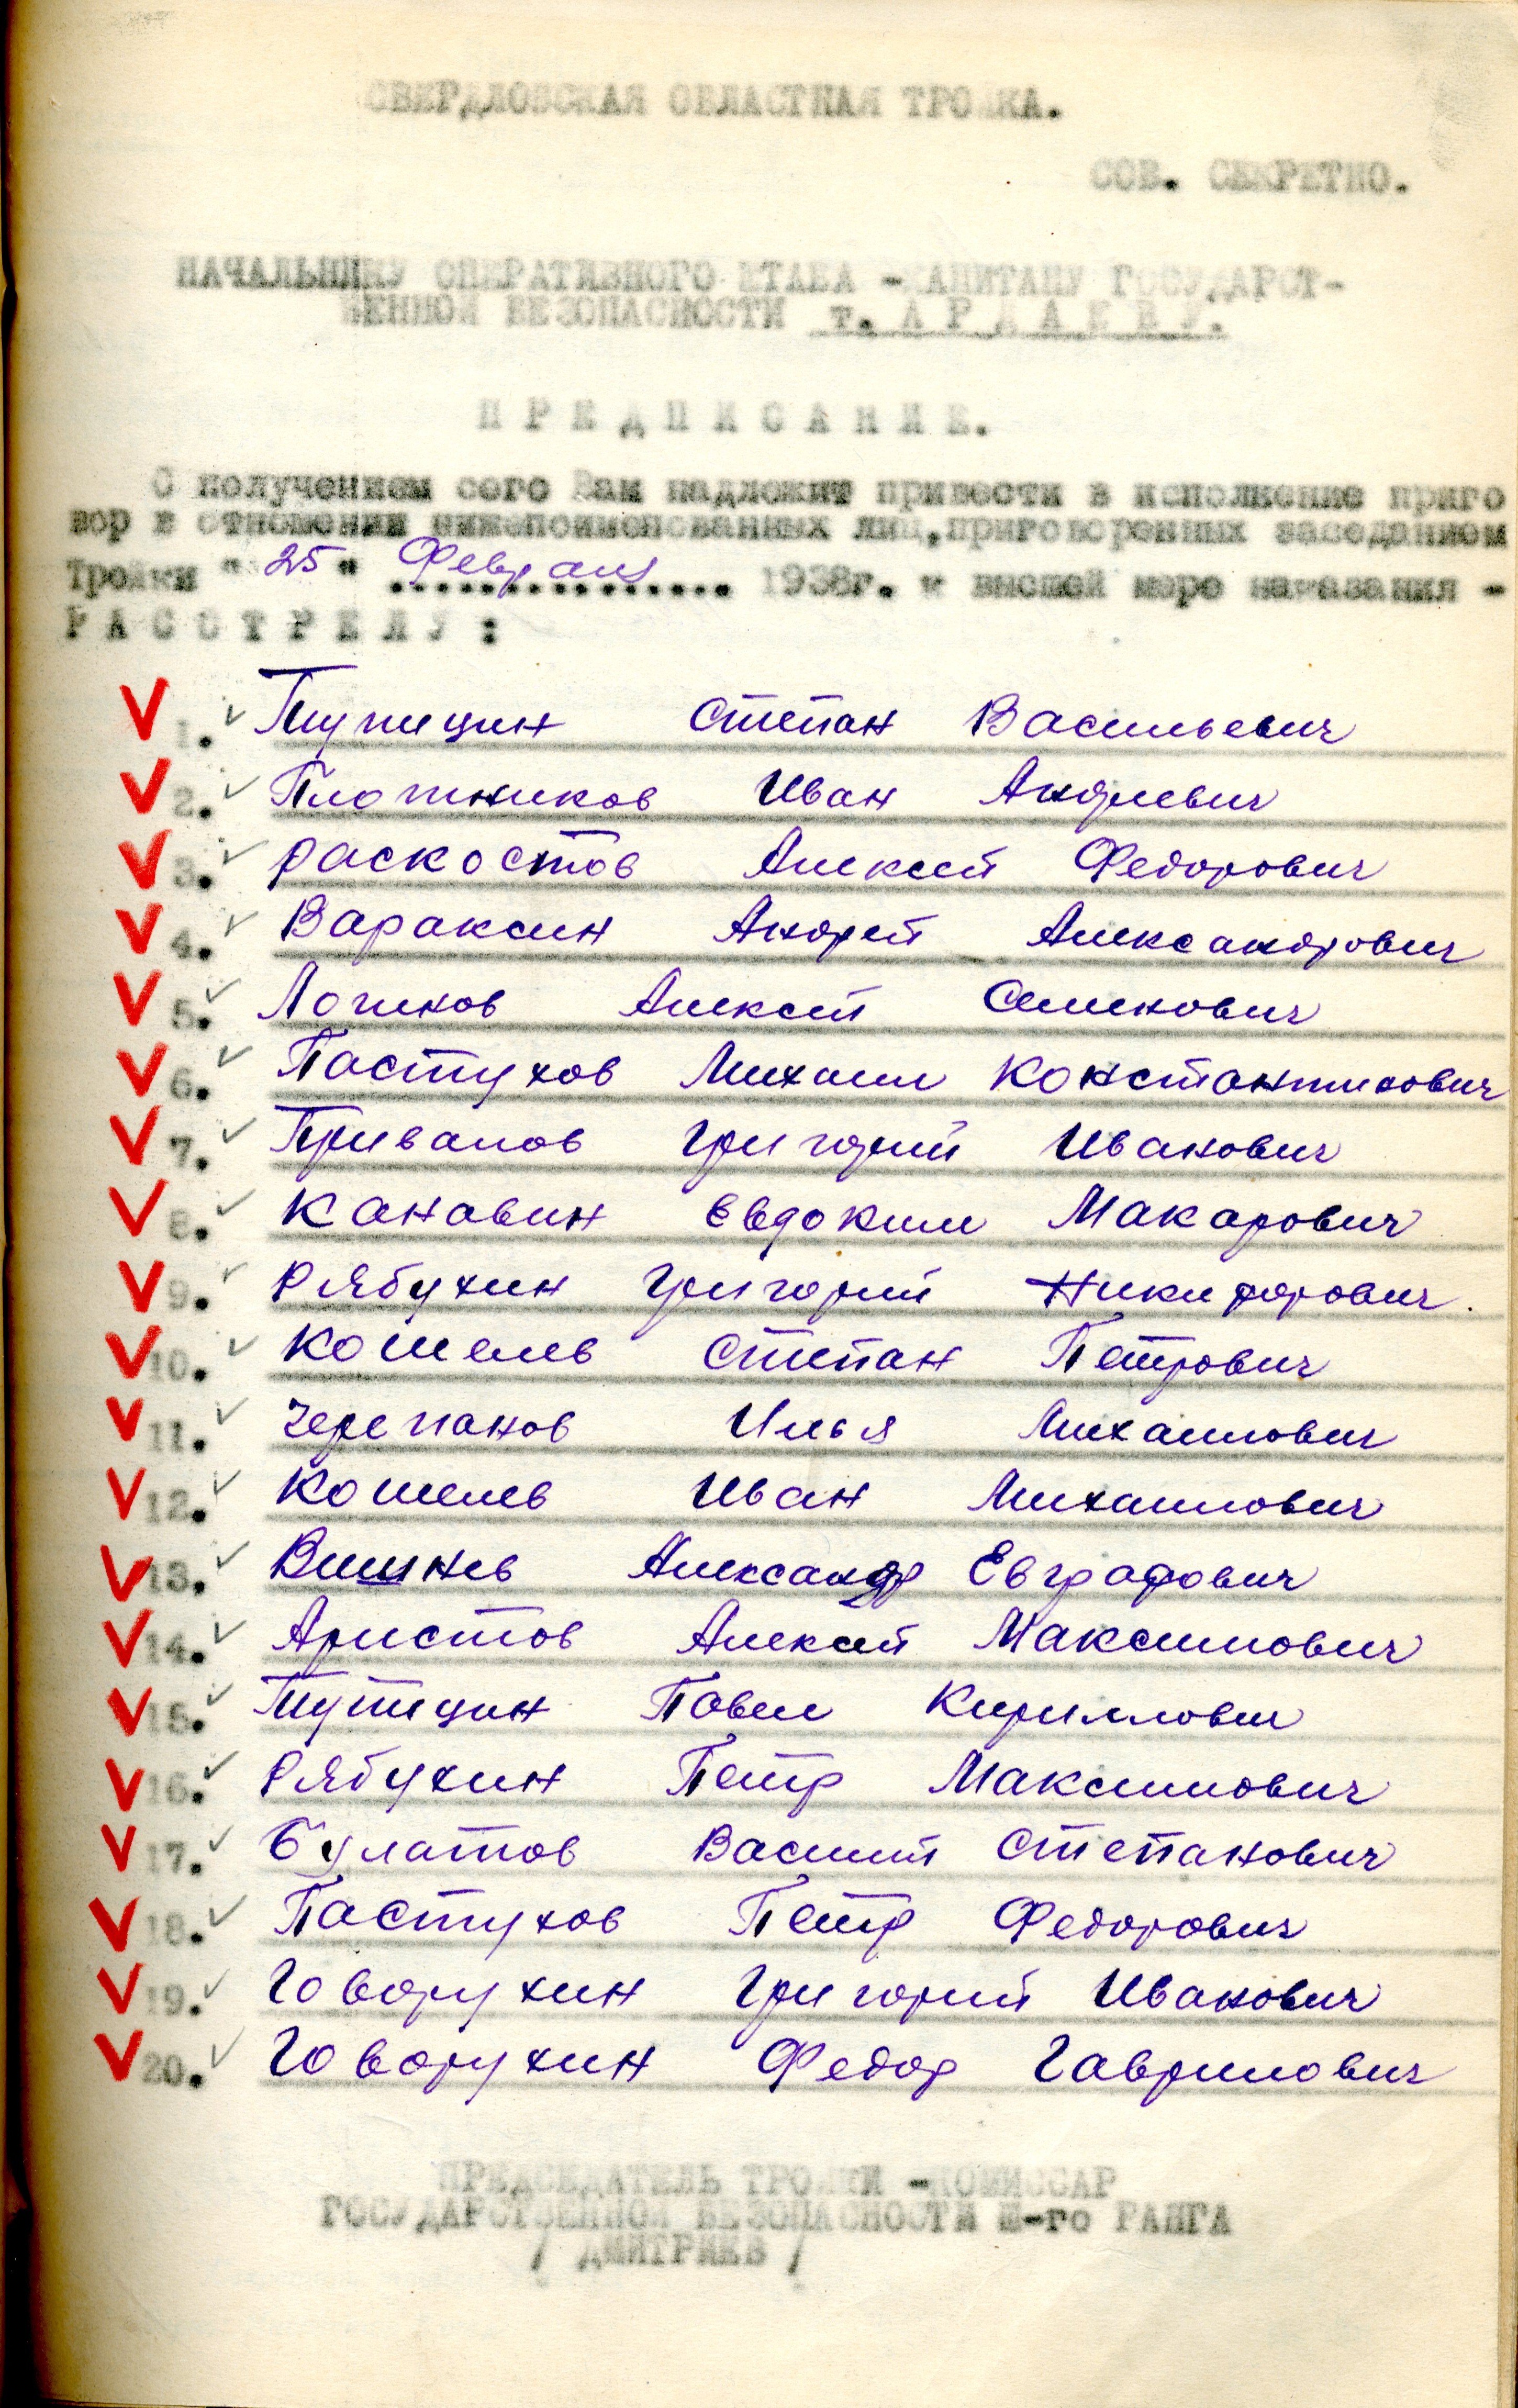 СВЕРДЛОВСКАЯ ОБЛАСТНАЯ ТРОЙКА.
СОВ. СЕКРЕТНО.
НАЧАЛЬНИКУ ОПЕРАТИВНОГО ШТАБА - КАПИТАНУ ГОСУДАРСТ-
ВЕННОЙ БЕЗОПАСНОСТИ т. А Р Д А Е В У.
П Р Е Д П И С А Н И Е.
С получением сего Вам надлежит привести в исполнение приго
вор в отношении нижепоименованных лиц, приговоренных заседанием
Тройки "25" Февраля 1938г. к высшей мере наказания -
Р А С С Т Р Е Л У :
1. Тупицин Степан Васильевич
2. Плотников Иван Андреевич
3. Раскостов Алексей Федорович
4. Вараксин Андрей Александрович
5. Логинов Алексей Семенович
6. Пастухов Михаил Константинович
7. Привалов Григорий Иванович
8. Канавин Евдоким Макарович
9. Рябухин Григорий Никифорович.
10. Кошелев Степан Петрович
11. Черепанов Илья Михаилович
12. Кошелев Иван Михаилович
13. Вишнев Александр Евграфович
14. Аристов Алексей Максимович
15. Тупицин Павел Кириллович
16. Рябухин Петр Максимович
17. Булатов Василий Степанович
18. Пастухов Петр Федорович
19. Говорухин Григорий Иванович
20. Говорухин Федор Гаврилович
ПРЕДСЕДАТЕЛЬ ТРОЙКИ - КОМИССАР
ГОСУДАРСТВЕННОЙ БЕЗОПАСНОСТИ Ш-го РАНГА
/ ДМИТРИЕВ /